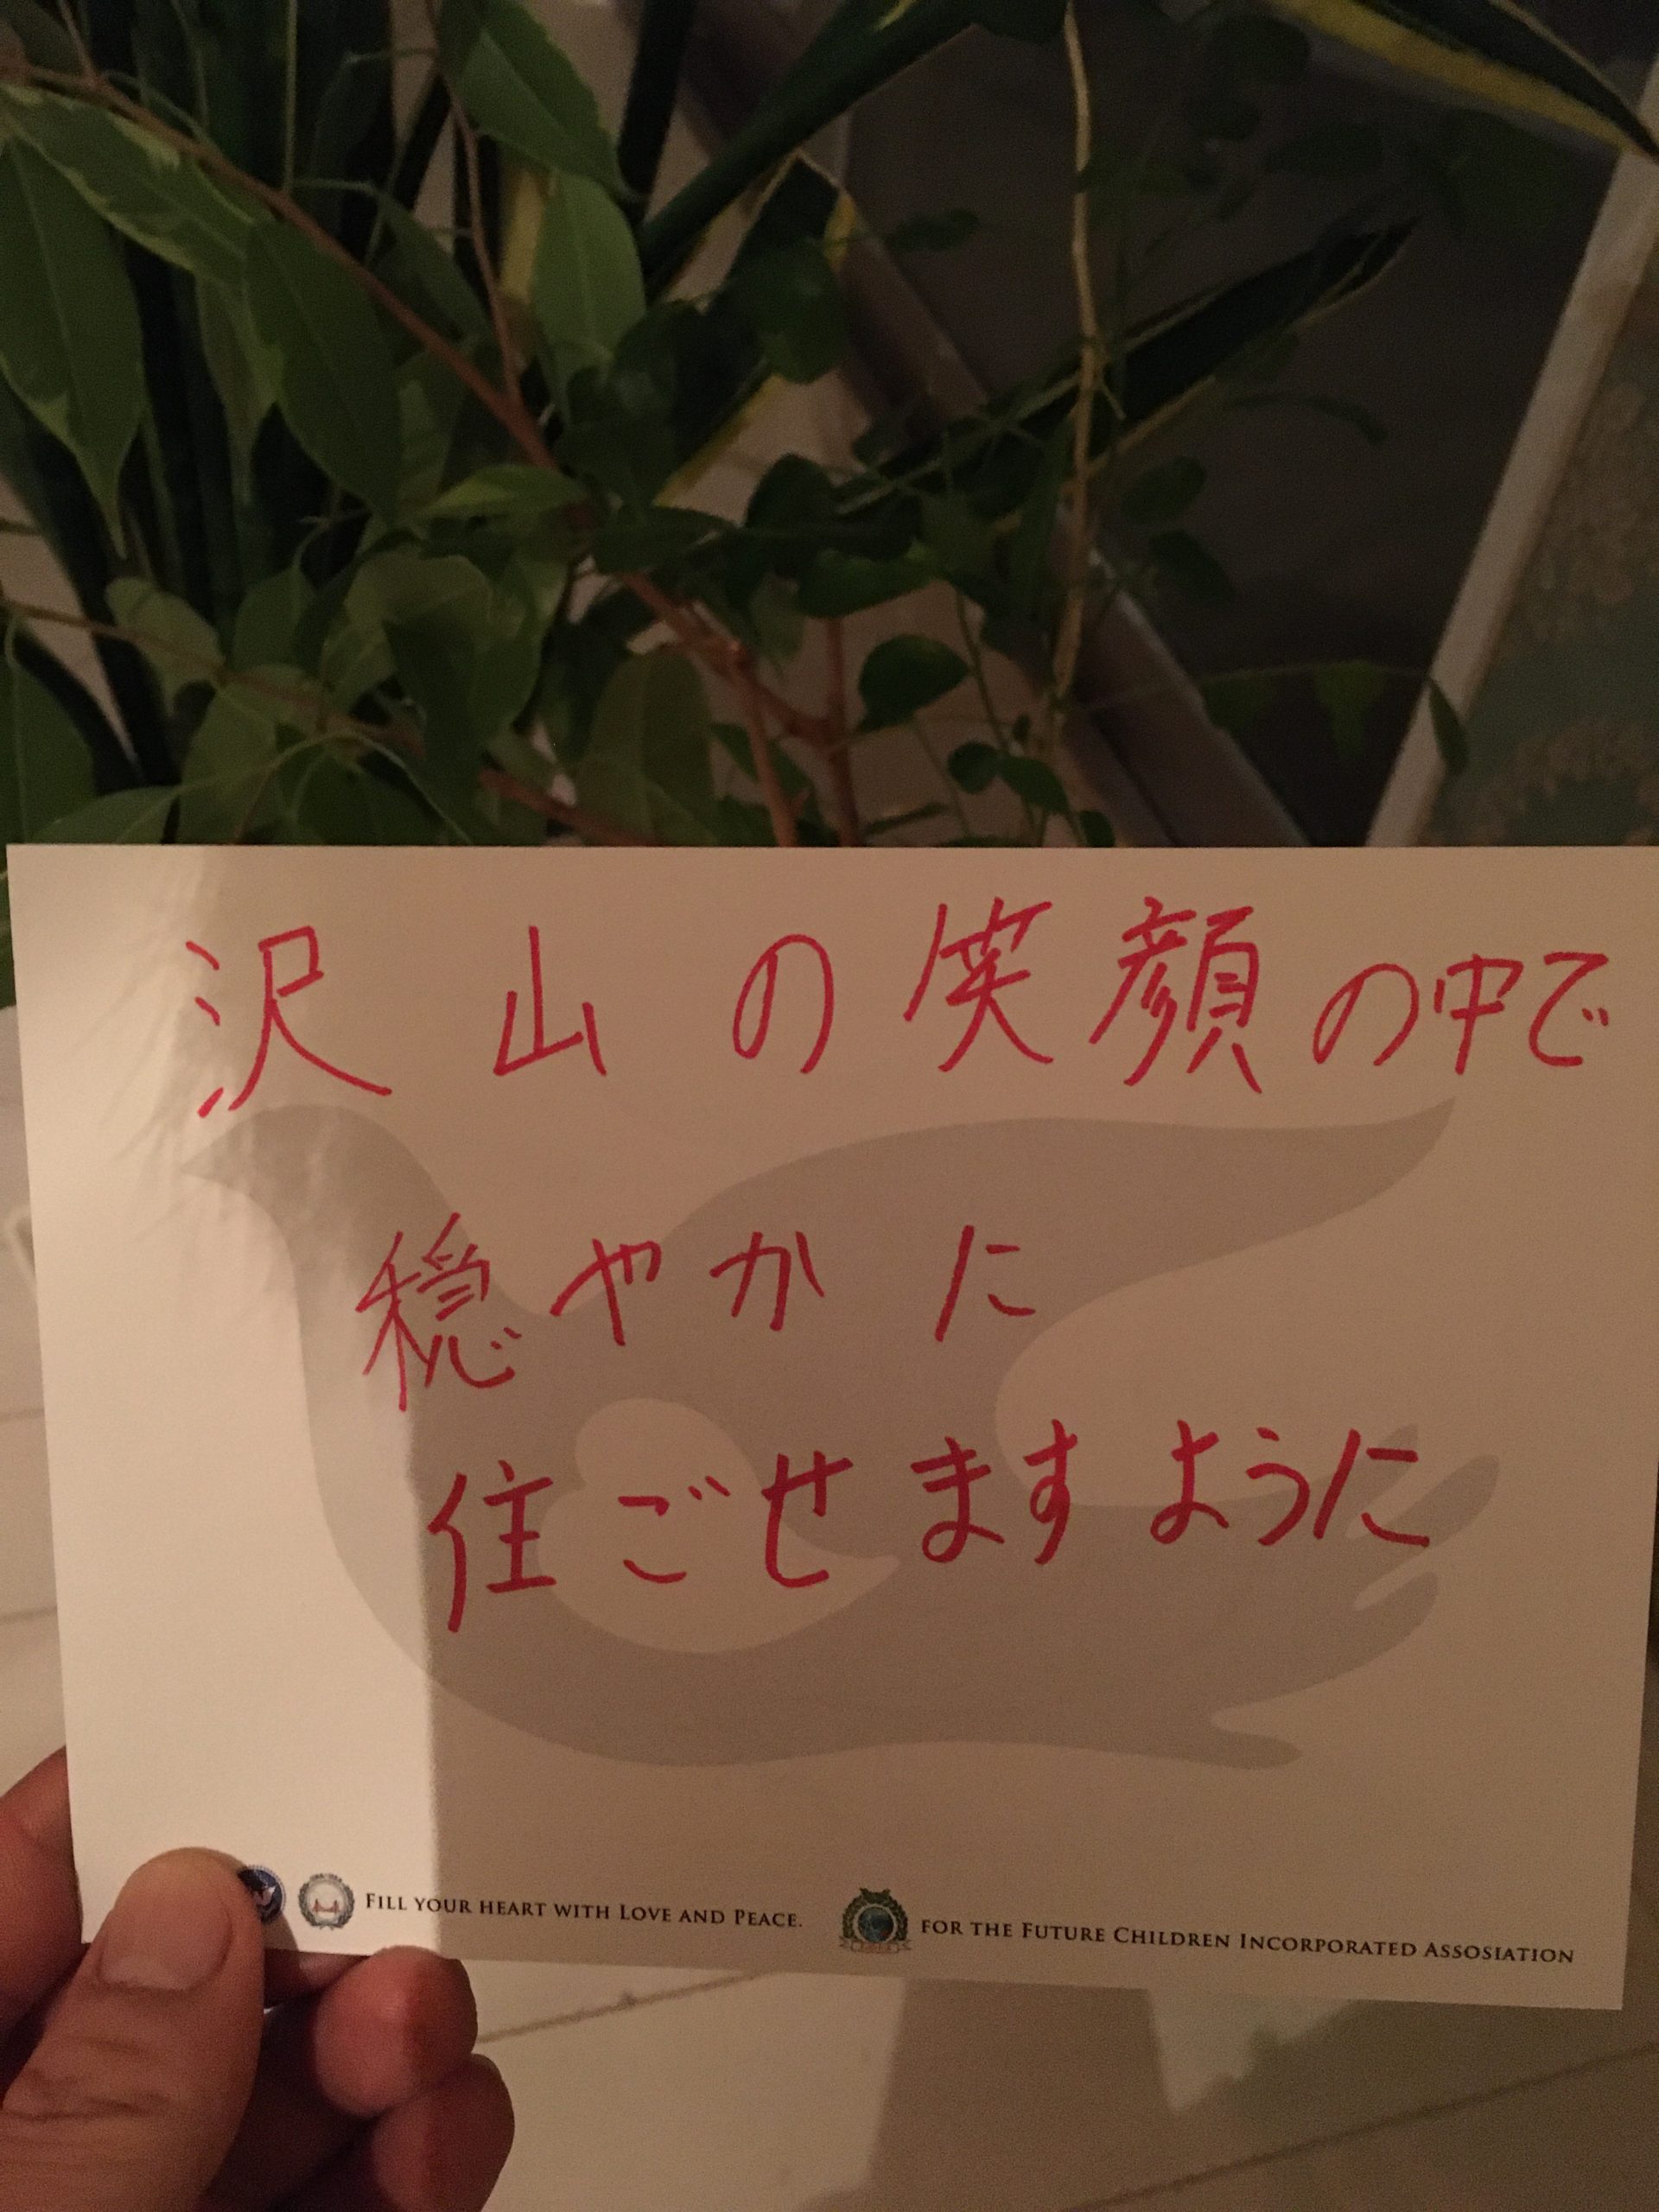 沢山の笑顔の中で
穏やかに
住ごせますように
FILL YOUR HEART WITH LOVE AND PEACE.
FOR THE FUTURE CHILDREN INCORPORATED ASSOSIATION